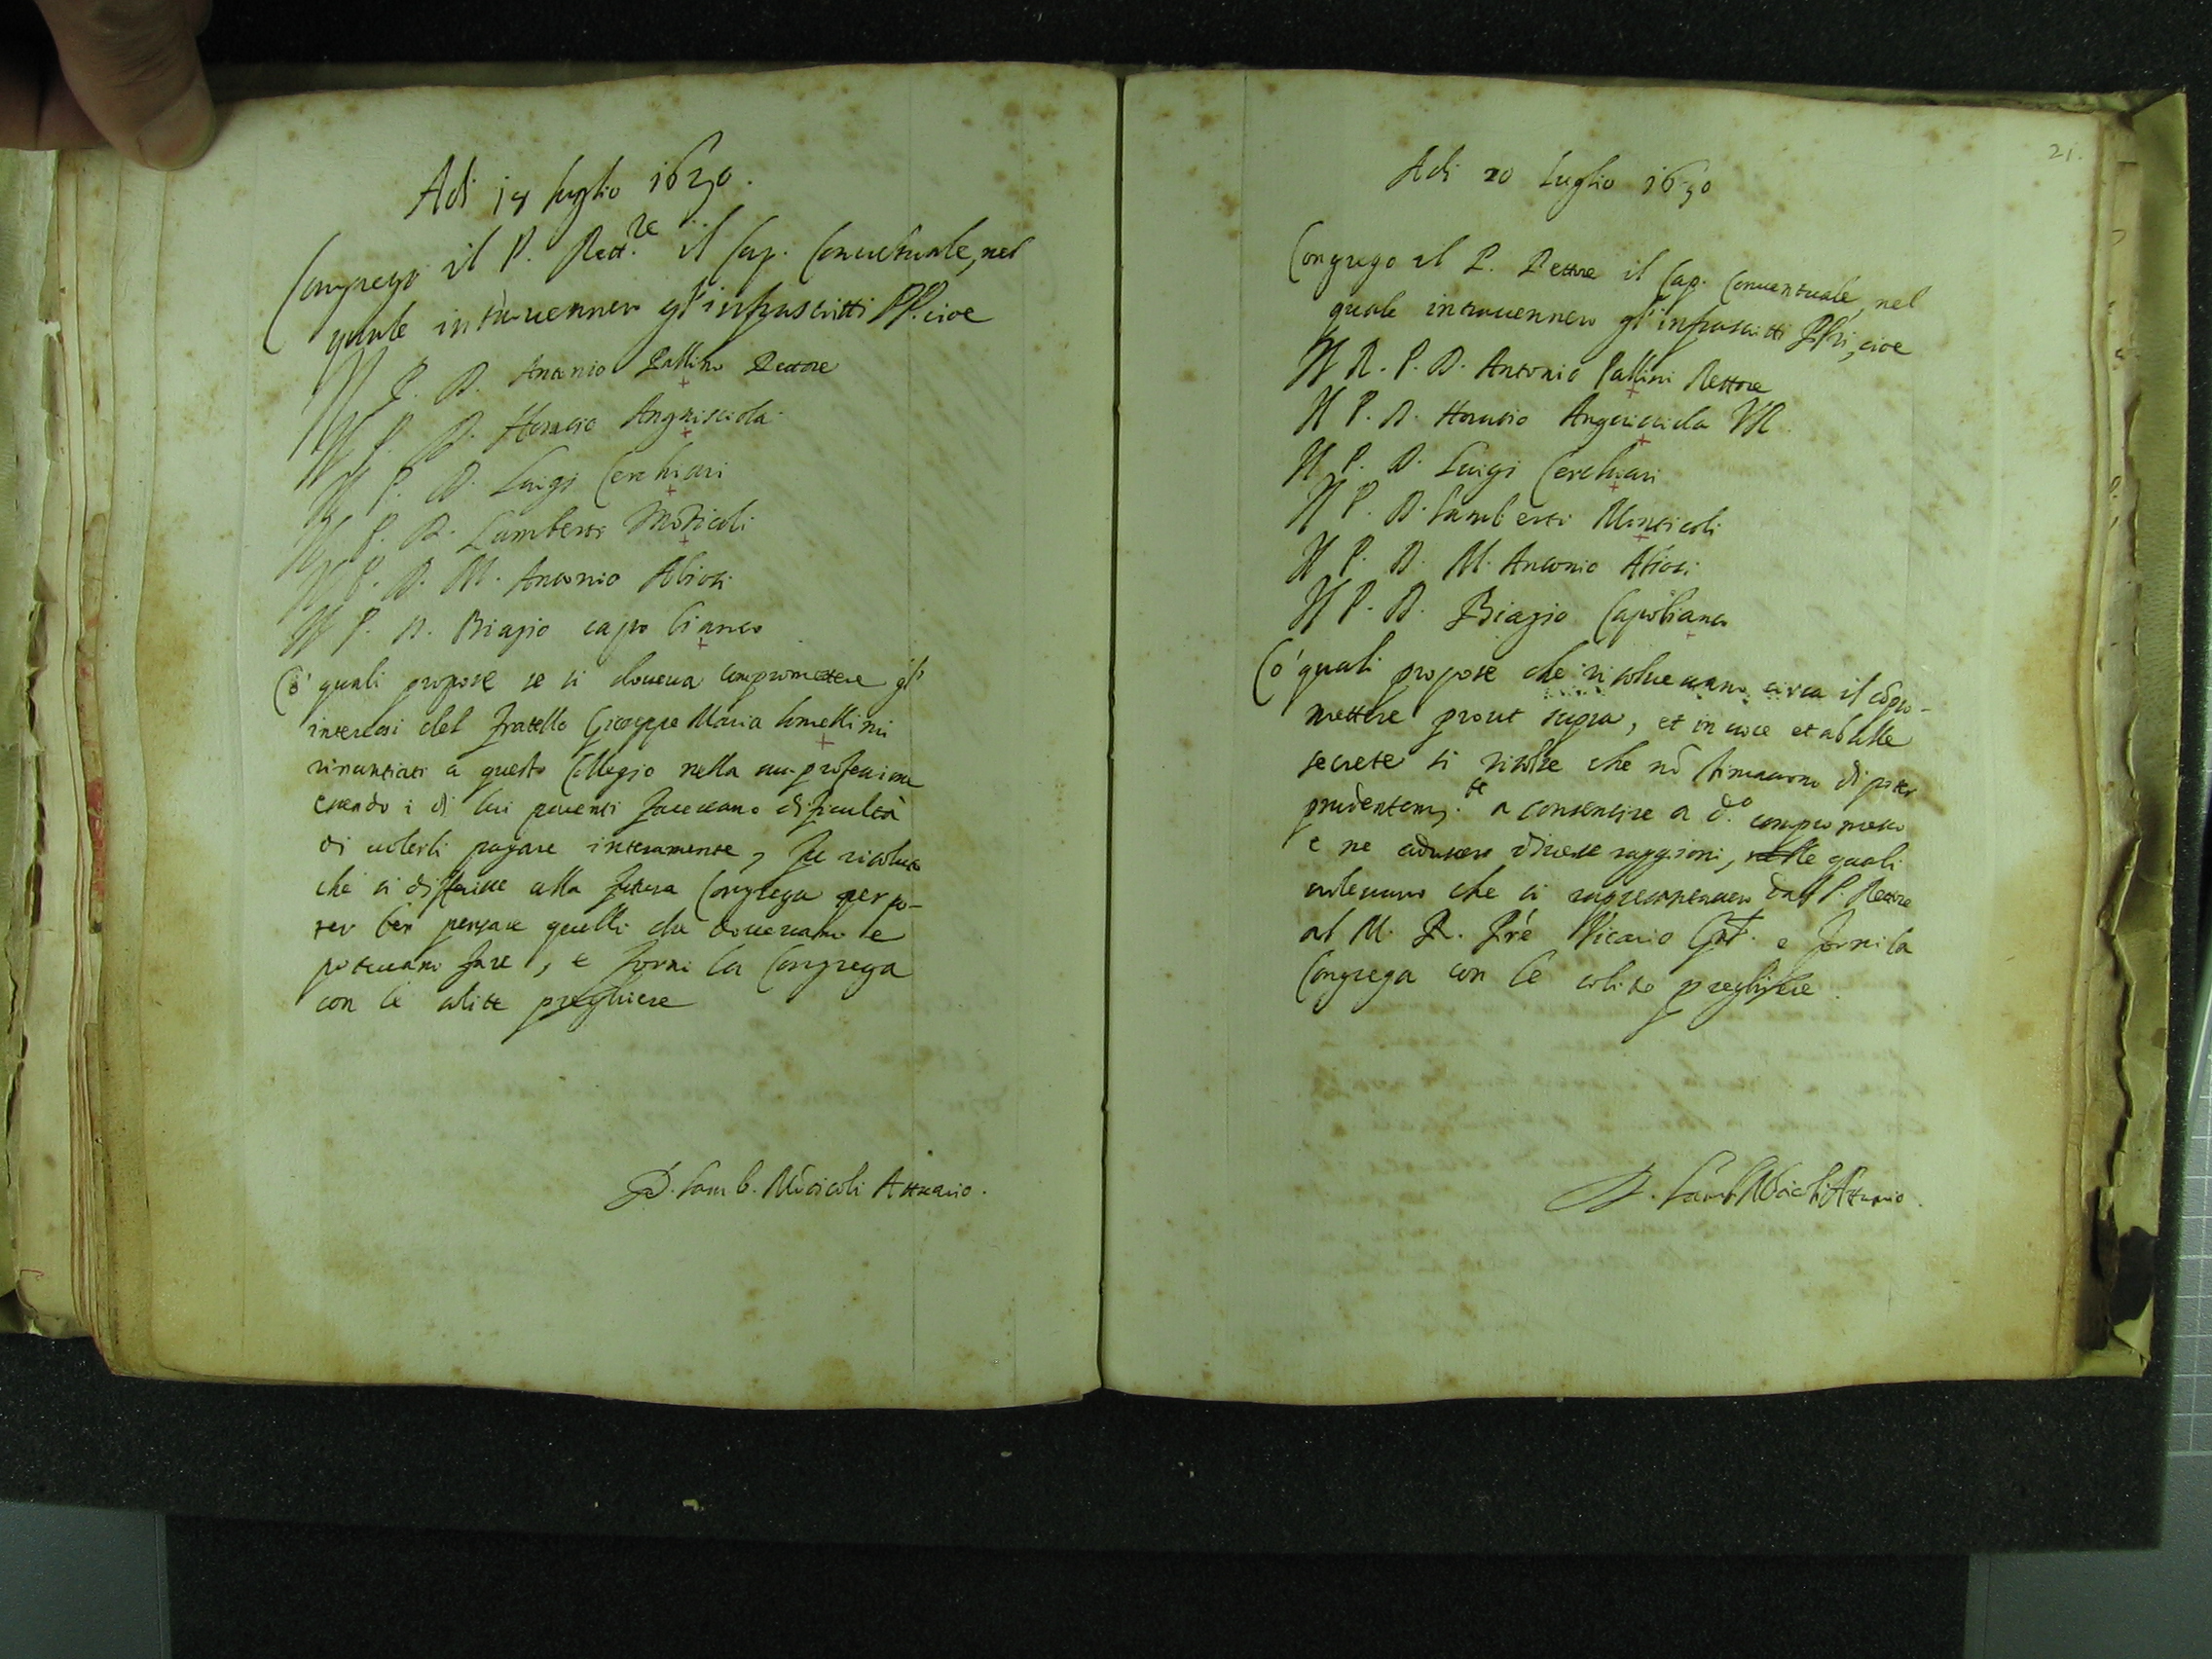 Adi 14 luglio 1630.
Congregò il P. Rett.re il Cap. Conventuale, nel
quale intravennero gl'infrascritti PP. cioe
Il P. D. Antonio Pallini Rettore
Il P. D. Horatio Anguisciola
Il P. D. Luigi Cerchiari
Il P. D. Lamberti Mõticoli
Il P. D. M. Antonio Abiosi
Il P. D. Biagio capo bianco
Cõ quali propose se si doueua compromettere gl'
interessi del fratello Gioseppe Maria Lomellini
rinuntiati a questo Collegio nella sua professione
essendo i di lui parenti faceuano dificultà
di uolerli pagare interamente, fu risoluto
che si differisse alla futura Congrega per po-
ter ben pensare quelli che doueuano e
poteuano fare, e forni la Congrega
con le solite preghiere
D. Lamb. Mõticoli Attuario.
21.
Adi 20 Luglio 1630
Congrego il P. Rettore il Cap. Conuentuale, nel
quale intrauennero gl'infrascritti Pri, cioe
Il R. P. D. Antonio Pallini Rettore
Il P. D. Horatio Anguisciola VR.
Il P. D. Luigi Cerchiari
Il P. D. Lamberti Monticoli
Il P. D. M. Antonio Abiosi
Il P. D. Biagio Capobianco
Cõ quali propose che risolueuano circa il cõpro-
mettere prout supra, et in uoce et a balle
secrete si risolse che nõ stimauano di poter
prudentem.te a consentire a d.o compromesso
e ne adusero diuerse raggioni, le quali
uoleuano che si rapresentassero dal P. Rettore
al M. R. Prê Vicario Gnl. e forni la
Congrega con le solite preghiere.
D. Lamb. Mõticoli Attuario.